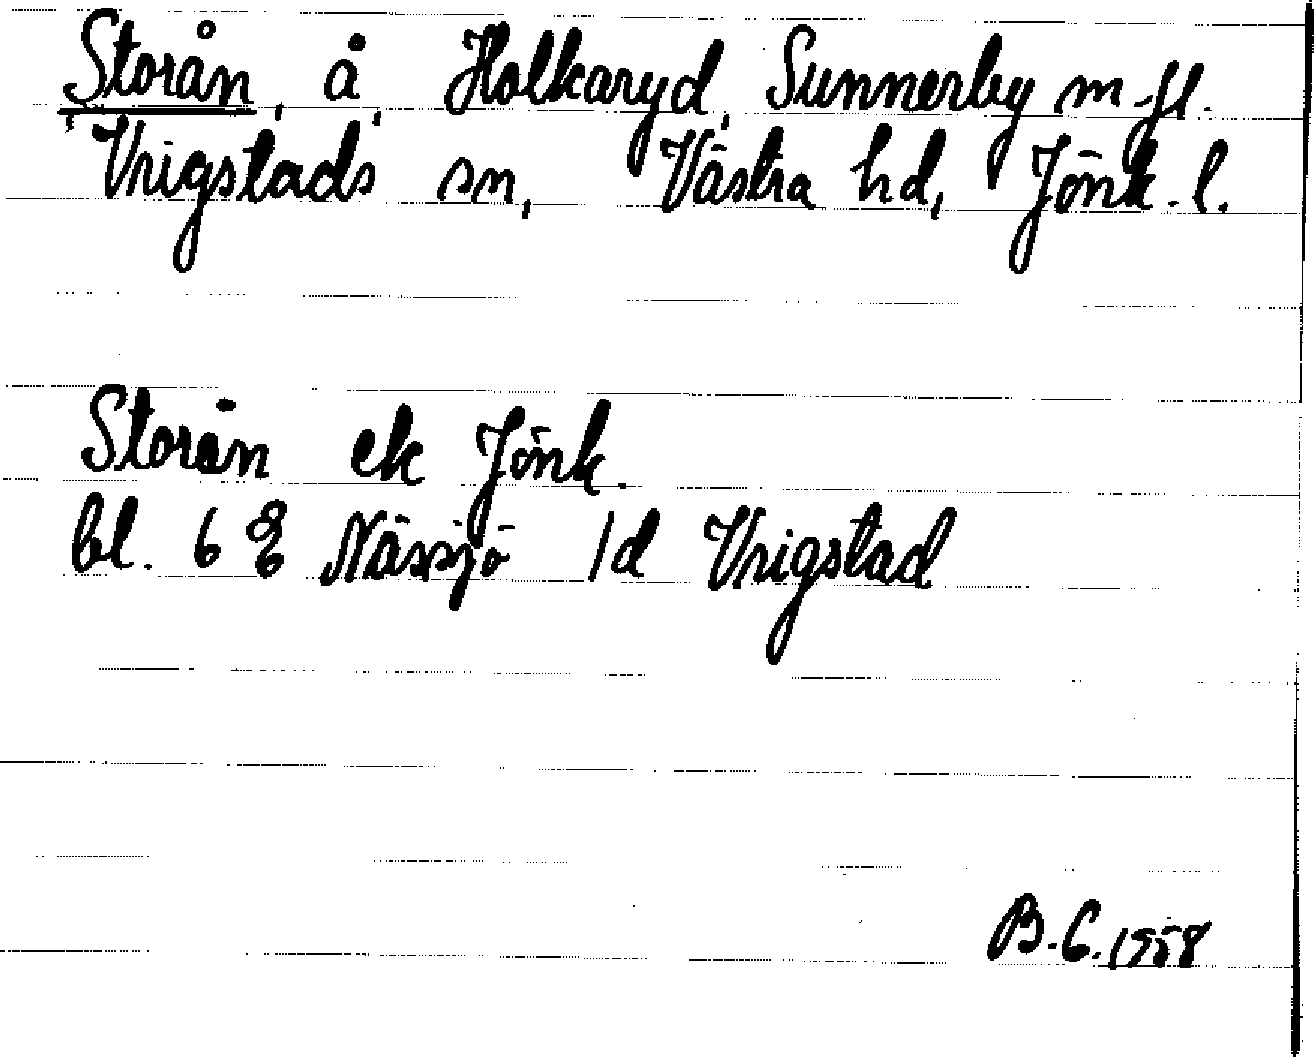 Storån, å, Holkaryd, Sunnerby m.fl.
Vrigstads sn, Västra hd, Jönk. l.
Storån ek Jönk.
bl. 6 E Nässjö 1d Vrigstad
B.C. 1958